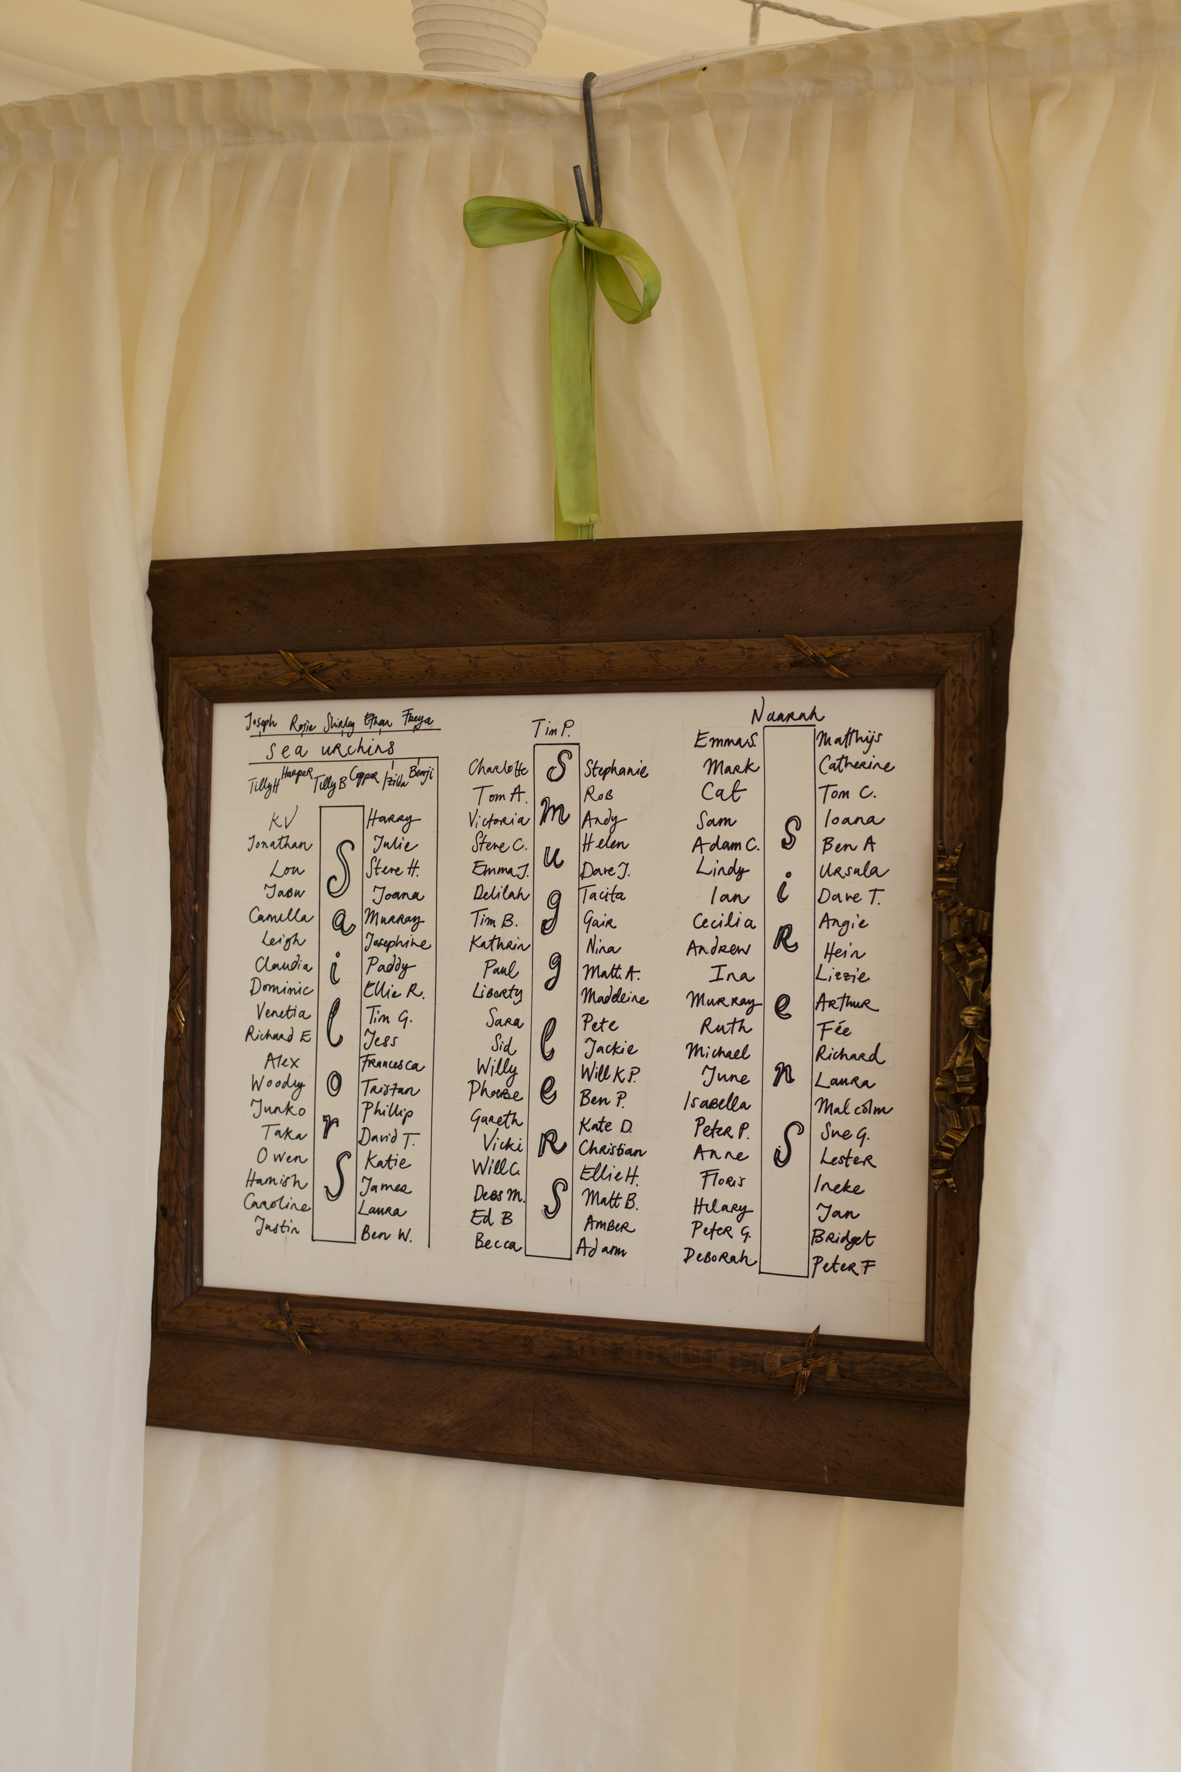 Joseph Rosie Shirley Ethan Freya
sea urchins
Tilly H Harper Tilly B Copper Izilda Benji
KV
Jonathan
Lou
Camilla
Leigh
Claudia
Dominic
Venetia
Richard E
Alex
Woody
Junko
Taka
Owen
Hamish
Caroline
Justin
Sailors
Harry
Julie
Steve H.
Joana
Murray
Josephine
Paddy
Ellie R.
Tim G.
Jess
Francesca
Tristan
Phillip
David T.
Katie
James
Laura
Ben W.
Tim P.
Charlotte
Tom A.
Victoria
Steve C.
Emma J.
Delilah
Tim B.
Kathrin
Paul
Liberty
Sara
Sid
Willy
Phoebe
Gareth
Vicki
Will C.
Debs M.
Ed B
Becca
Smugglers
Stephanie
Rob
Andy
Helen
Dave J.
Tacita
Gair
Nina
Matt. A.
Madeleine
Pete
Jackie
Will K.P.
Ben P.
Kate D.
Christian
Ellie H.
Matt B.
Amber
Adam
Naarah
Emma S.
Mark
Cat
Sam
Adam C.
Lindy
Ian
Cecilia
Andrew
Ina
Murray
Ruth
Michael
June
Isabella
Peter P.
Anne
Floris
Hilary
Peter G.
Deborah
Sirens
Matthijs
Catherine
Tom C.
Ioana
Ben A
Ursula
Dave T.
Angie
Hein
Lizzie
Arthur
Fée
Richard
Laura
Malcolm
Sue G.
Lester
Ineke
Jan
Bridget
Peter F